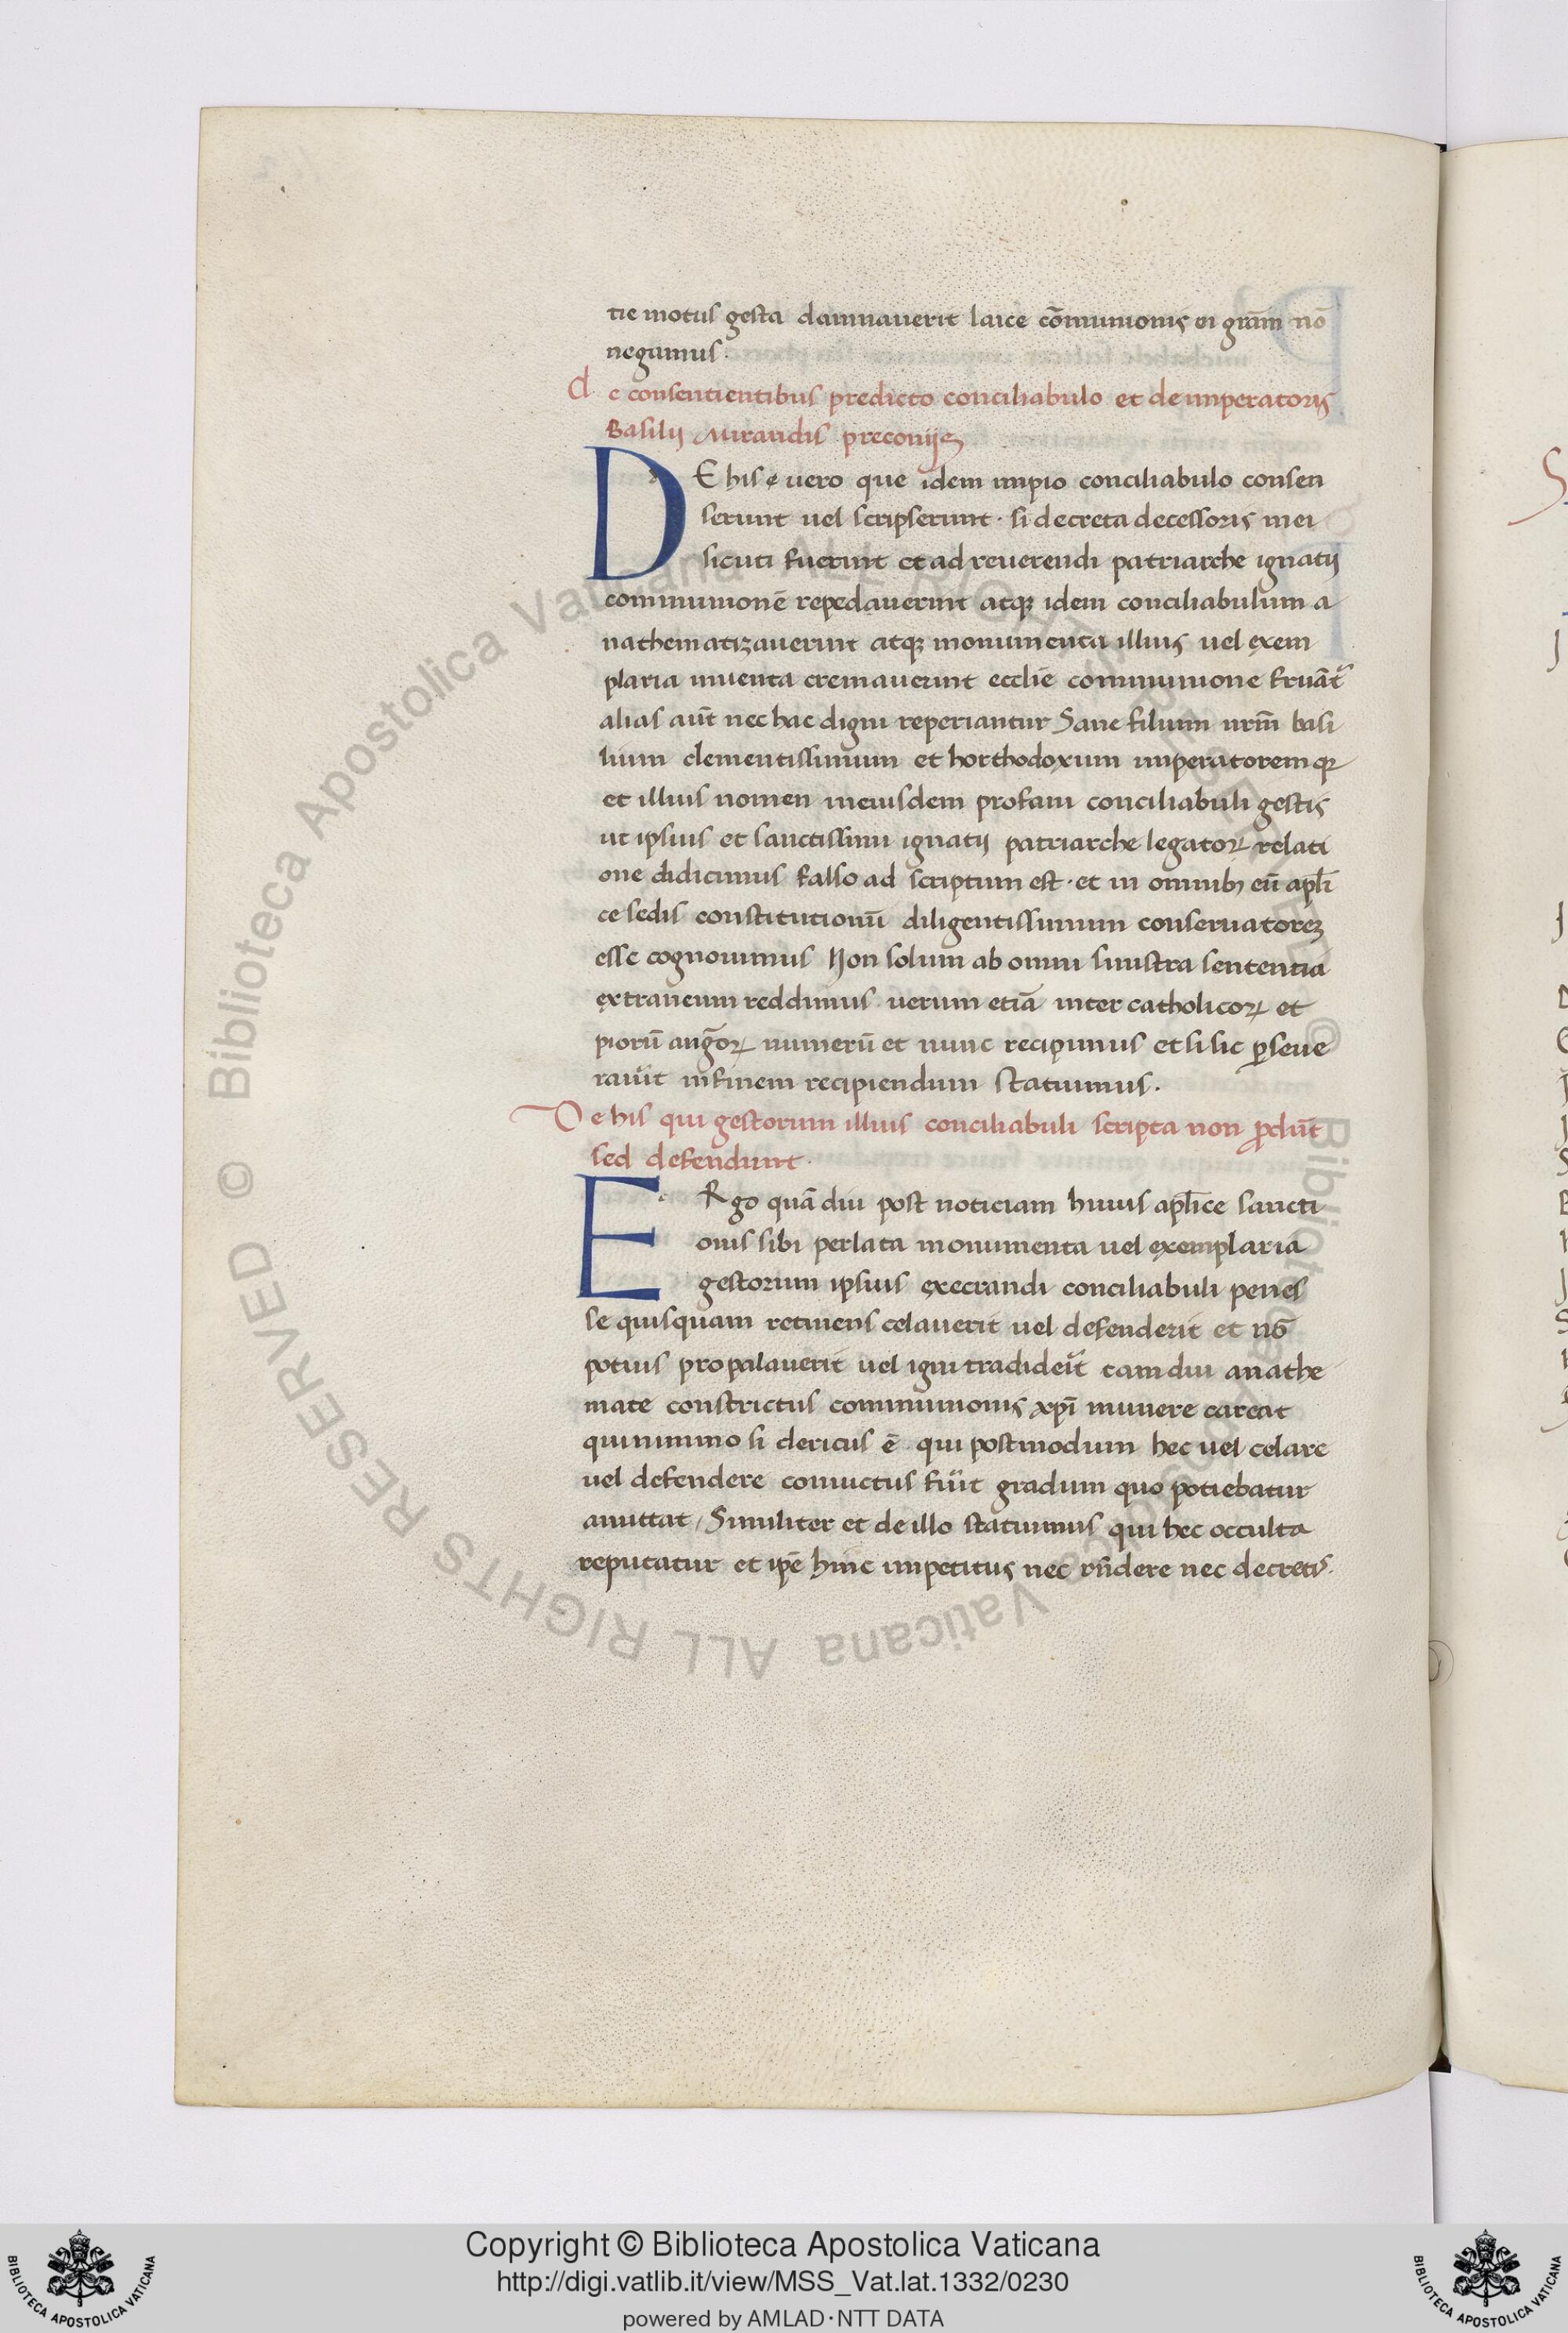 tie motus gesta damnauerit laice cōmunionis ei grām nō
negamus.
de consentientibus predicto conciliabulo et de imperatoris
Basilij Mirandis preconijs
DE his vero que idem impio conciliabulo consen
serunt uel scripserunt · si decreta decessoris mei
sicuti fuerint et ad reuerendi patriarche ignatij
communionē repedauerint atqꝫ idem conciliabulum a
nathematizauerint atqꝫ monumenta illius uel exem
plaria inuenta cremauerint ecclīe communione fruāt᷑
alias aūt nec hac digni reperiantur Sane filium nrm̄ basi
lium clementissimum et horthodoxum imperatoremqꝫ
et illius nomen in eiusdem profani conciliabuli gestis
ut ipsius et sanctissimi ignatij patriarche legatoꝝ relati
one didicimus falso ad scriptum est · et in omnibꝫ eū apl̄i
ce sedis constitutionū diligentissimum conseruatoreꝫ
esse cognouimus Non solum ab omni sinistra sententia
extraneum reddimus uerum etiā inter catholicoꝝ et
piorū auḡoꝝ numerū et nunc recipimus et si sic ꝑseue
rau̾it in finem recipiendum statuimus.
De his qui gestorum illius conciliabuli scripta non ꝓdūt
sed defendunt.
ERgo quā diu post noticiam huius apl̄ice sancti
onis sibi perlata monumenta uel exemplaria
gestorum ipsius execrandi conciliabuli penes
se quisquam retinens celauerit uel defenderit et nō
potius propalauerit uel igni tradide᷑it tamdiu anathe
mate constrictus communionis xp̄i munere careat
quinimmo si clericus ē qui postmodum hec uel celare
uel defendere conuictus fu̾it gradum quo potiebatur
amittat / Similiter et de illo statuimus qui hec occulta
reputatur et ip̄e hinc impetitus nec rn̄dere nec decretis.
Copyright © Biblioteca Apostolica Vaticana
http://digi.vatlib.it/view/MSS_Vat.lat.1332/0230
powered by AMLAD·NTT DATA
BIBLIOTECA APOSTOLICA VATICANA
BIBLIOTECA APOSTOLICA VATICANA
© Biblioteca Apostolica Vaticana ALL RIGHTS RESERVED
© Biblioteca Apostolica Vaticana ALL RIGHTS RESERVED